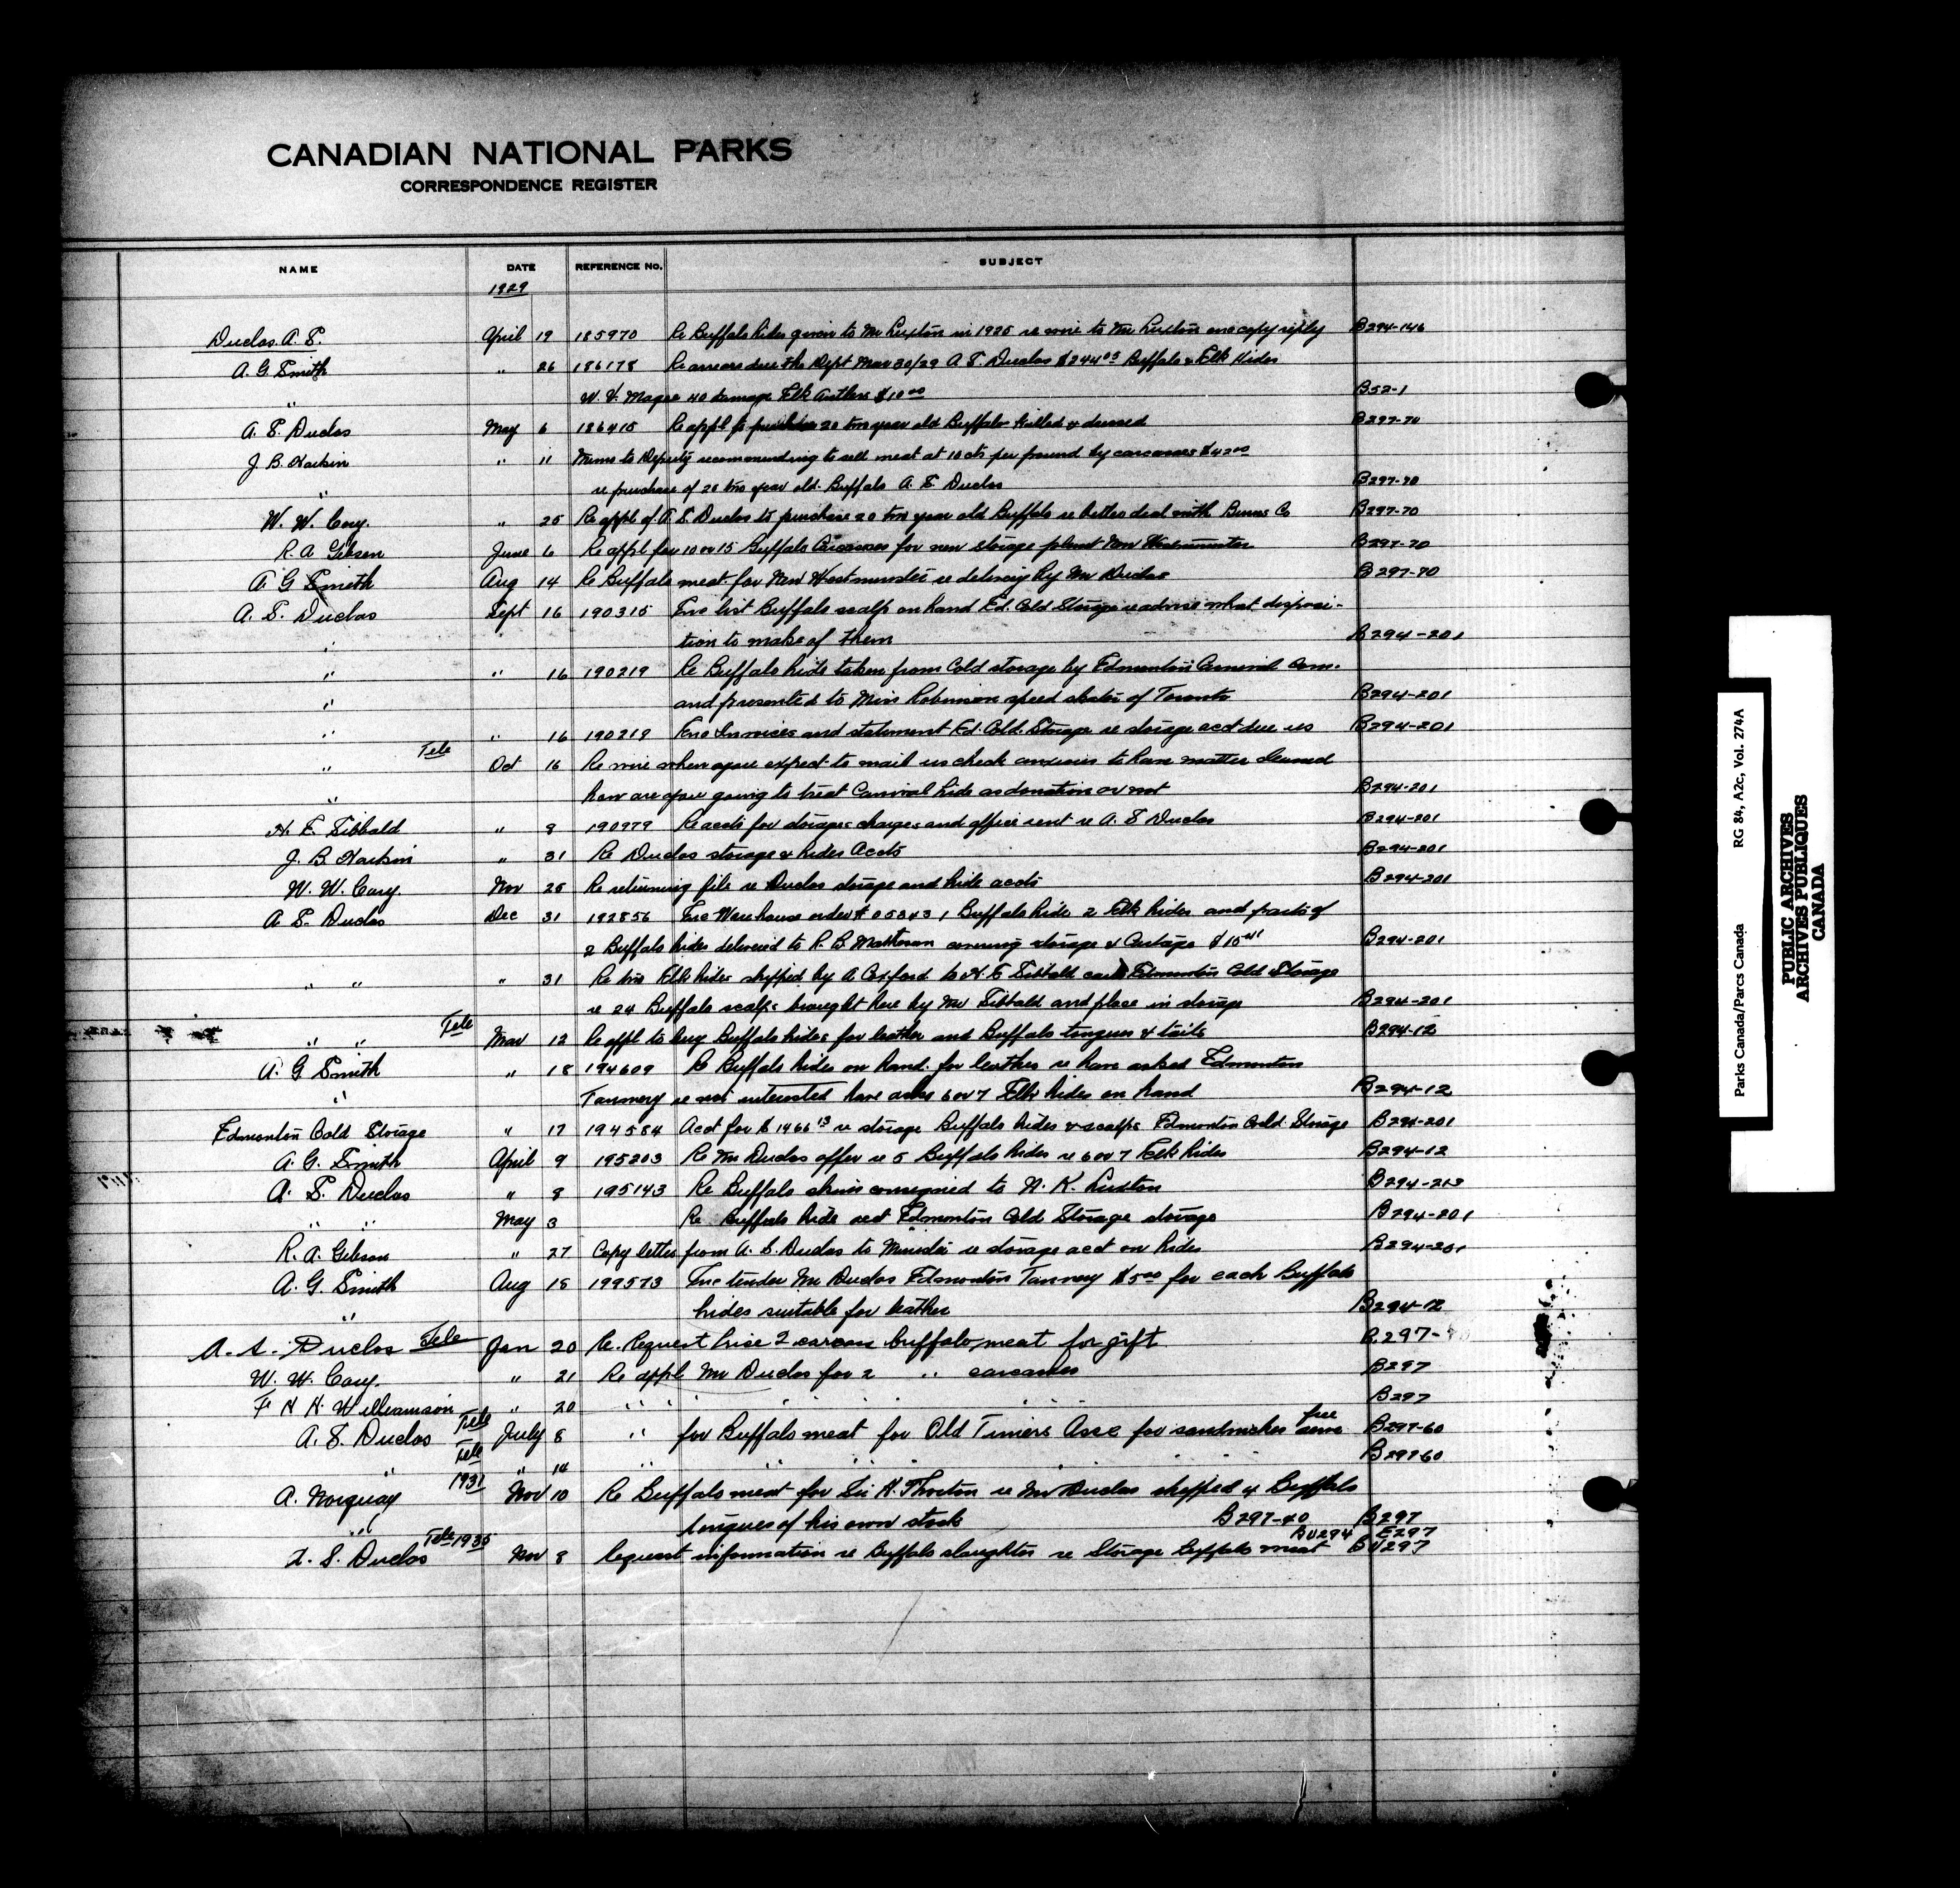 CANADIAN NATIONAL PARKS
CORRESPONDENCE REGISTER
NAME DATE REFERENCE No. SUBJECT
1929
Duclos A. S. April 19 185970 Re Buffalo hides given to Mr Luxton in 1925 re wire to Mr Luxton enc copy reply B294-146
A. G. Smith " 26 186178 Re arrears due the Dept Mar 30/29 A. S. Duclos $244.05 Buffalo & Elk Hides
" W. V. 40 damage Elk Antlers $10.00 B52-1
A. S. Duclos May 6 186415 Re appl to purchase 20 two year old Buffalo killed & dressed B297-70
J. B. Harkin " 11 Memo to Deputy recommending to sell meat at 10 cts per pound by carcasses $42.00
" re purchase of 20 two year old Buffalo A. S. Duclos B297-70
W. W. Cory. " 25 Re appl of A. S. Duclos to purchase 20 two year old Buffalo re better deal with Burns Co B297-70
R. A Gibson June 6 Re appl for 10 or 15 Buffalo Carcasses for new storage plant New Westminster B297-70
A G Smith Aug 14 Re Buffalo meat for New Westminster re delivery by Mr Duclos B297-70
A. S. Duclos Sept 16 190315 Enc list Buffalo scalps on hand Ed. Cold Storage re advise what disposi-
" tion to make of them B294-201
" " 16 190219 Re Buffalo hide taken from Cold storage by Edmonton Carnival Com.
" and presented to Miss Robinson speed skater of Toronto B294-201
" " 16 190219 Enc Invoices and statement Ed. Cold. Storage re storage acct due us B294-201
" Tele Oct 16 Re wire when you expect to mail us check anxious to have matter cleaned
" how are you going to treat Carnival hide as donation or not B294-201
H. E. Sibbald " 9 190979 Re accts for storage charges and office rent re A. S Duclos B294-201
J. B. Harkin " 31 Re Duclos storage & hides Accts B294-201
W. W. Cory Nov 25 Re returning file re Duclos storage and hide accts B294-201
A. S. Duclos Dec 31 192856 Enc Warehouse order # 05343 1 Buffalo hide 2 Elk hides and parts of
2 Buffalo hides delivered to R. B. covering storage & Cartage $15.41 B294-201
" " " 31 Re two Elk hides shipped by A Coxford to H. E Sibbald care Edmonton Cold Storage
re 24 Buffalo scalps brought here by Mr Sibbald and place in storage B294-201
" " Tele Mar 12 Re appl to buy Buffalo hides for leather and Buffalo tongues & tails B294-12
A. G Smith " 18 194609 Re Buffalo hides on hand for leather re have asked Edmonton
" Tannery re not interested have also 6 or 7 Elk hides on hand B294-12
Edmonton Cold Storage " 17 194584 Acct for $1466.13 re storage Buffalo hides & scalps Edmonton Cold Storage B294-201
A. G. Smith April 9 195203 Re Mr Duclos offer re 5 Buffalo hides re 6 or 7 Elk hides B294-12
A. S. Duclos " 8 195143 Re Buffalo skins consigned to N. K. Luxton B294-213
" " May 3 Re Buffalo hide acct Edmonton Cold Storage storage B294-201
R. A. Gibson " 27 Copy letter from A. S. Duclos to Minister re storage acct on hides B294-201
A. G. Smith Aug 15 199573 Enc tender Mr Duclos Edmonton Tannery $5.00 for each Buffalo
" hides suitable for leather B294-12
A. S. Duclos Tele Jan 20 Re. Request 2 carcass buffalo meat for gift B.297-
W. W. Cory. " 21 Re appl Mr Duclos for 2 " carcasses B297
F H H. Williamson " 20 " " " " " B297
A. S. Duclos Tele July 8 " for Buffalo meat for Old Timers Assc for sandwiches free B297-60
" Tele " 14 " " " " B29760
A. Norquay 1931 Nov 10 Re Buffalo meat for Sir H. Thorton re Mr Duclos shipped 4 Buffalo
" tongues of his own stock B297-40 B297
BU294 E297
A. S. Duclos Tele 1935 Nov 8 Request information re Buffalo slaughter re Storage Buffalo meat BU297
Parks Canada/Parcs Canada RG 84, A2c, Vol. 274A
PUBLIC ARCHIVES
ARCHIVES PUBLIQUES
CANADA